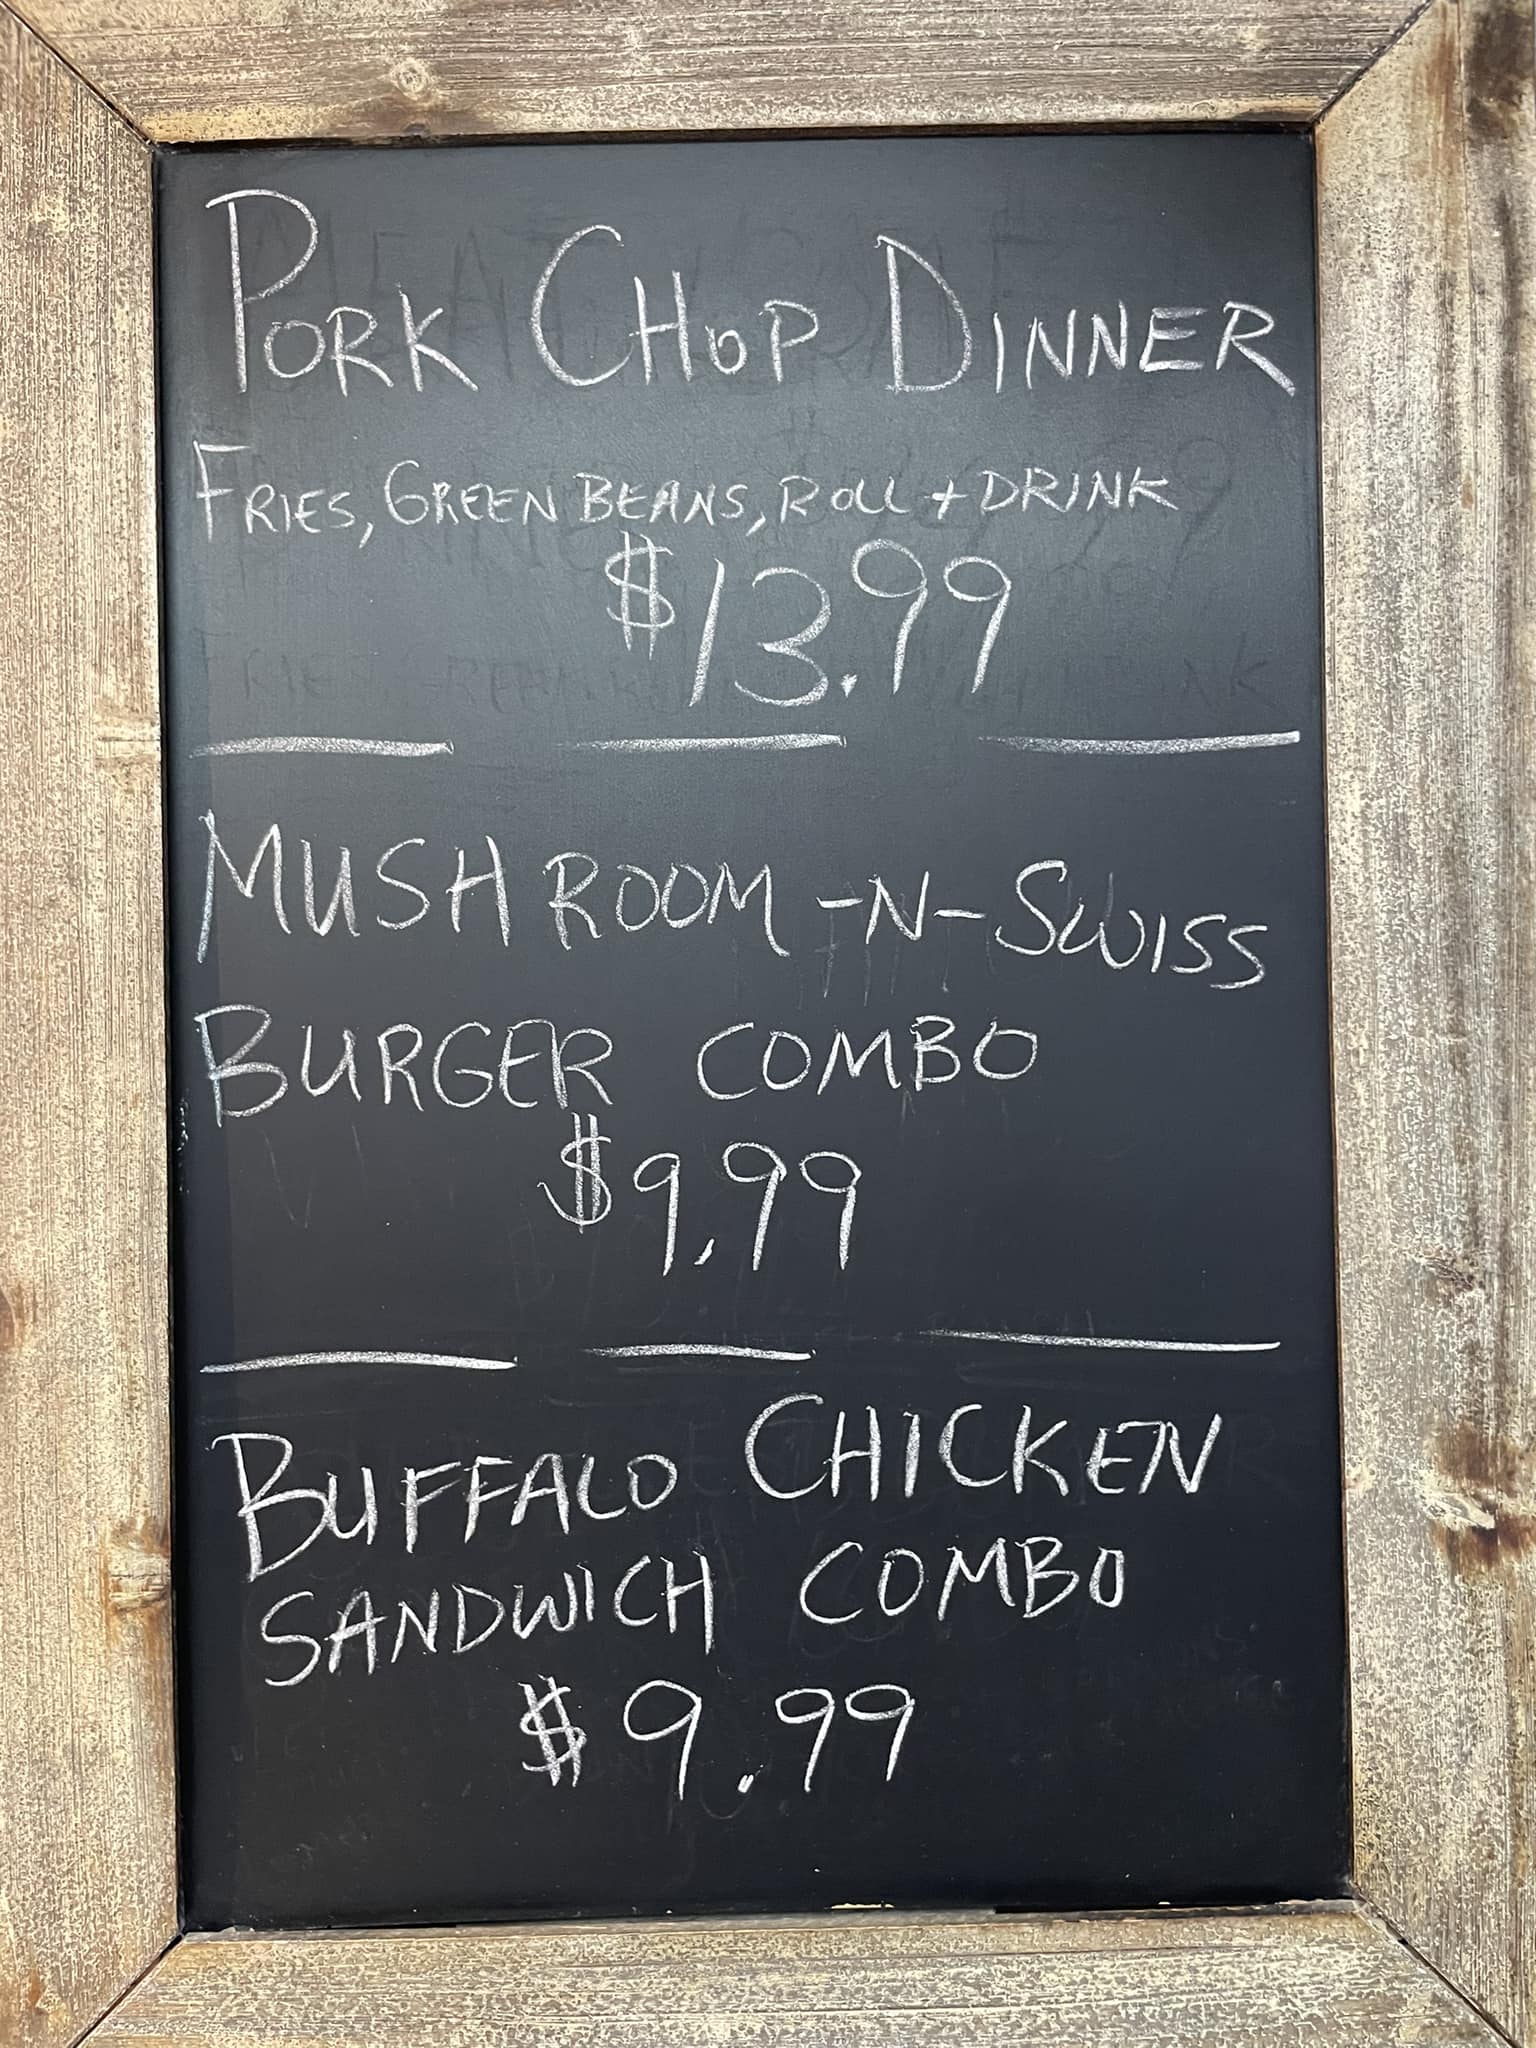 PORK CHOP DINNER
FRIES, GREEN BEANS, ROLL + DRINK
$13.99
MUSHROOM -N- SWISS
BURGER COMBO
$9.99
BUFFALO CHICKEN
SANDWICH COMBO
$9.99